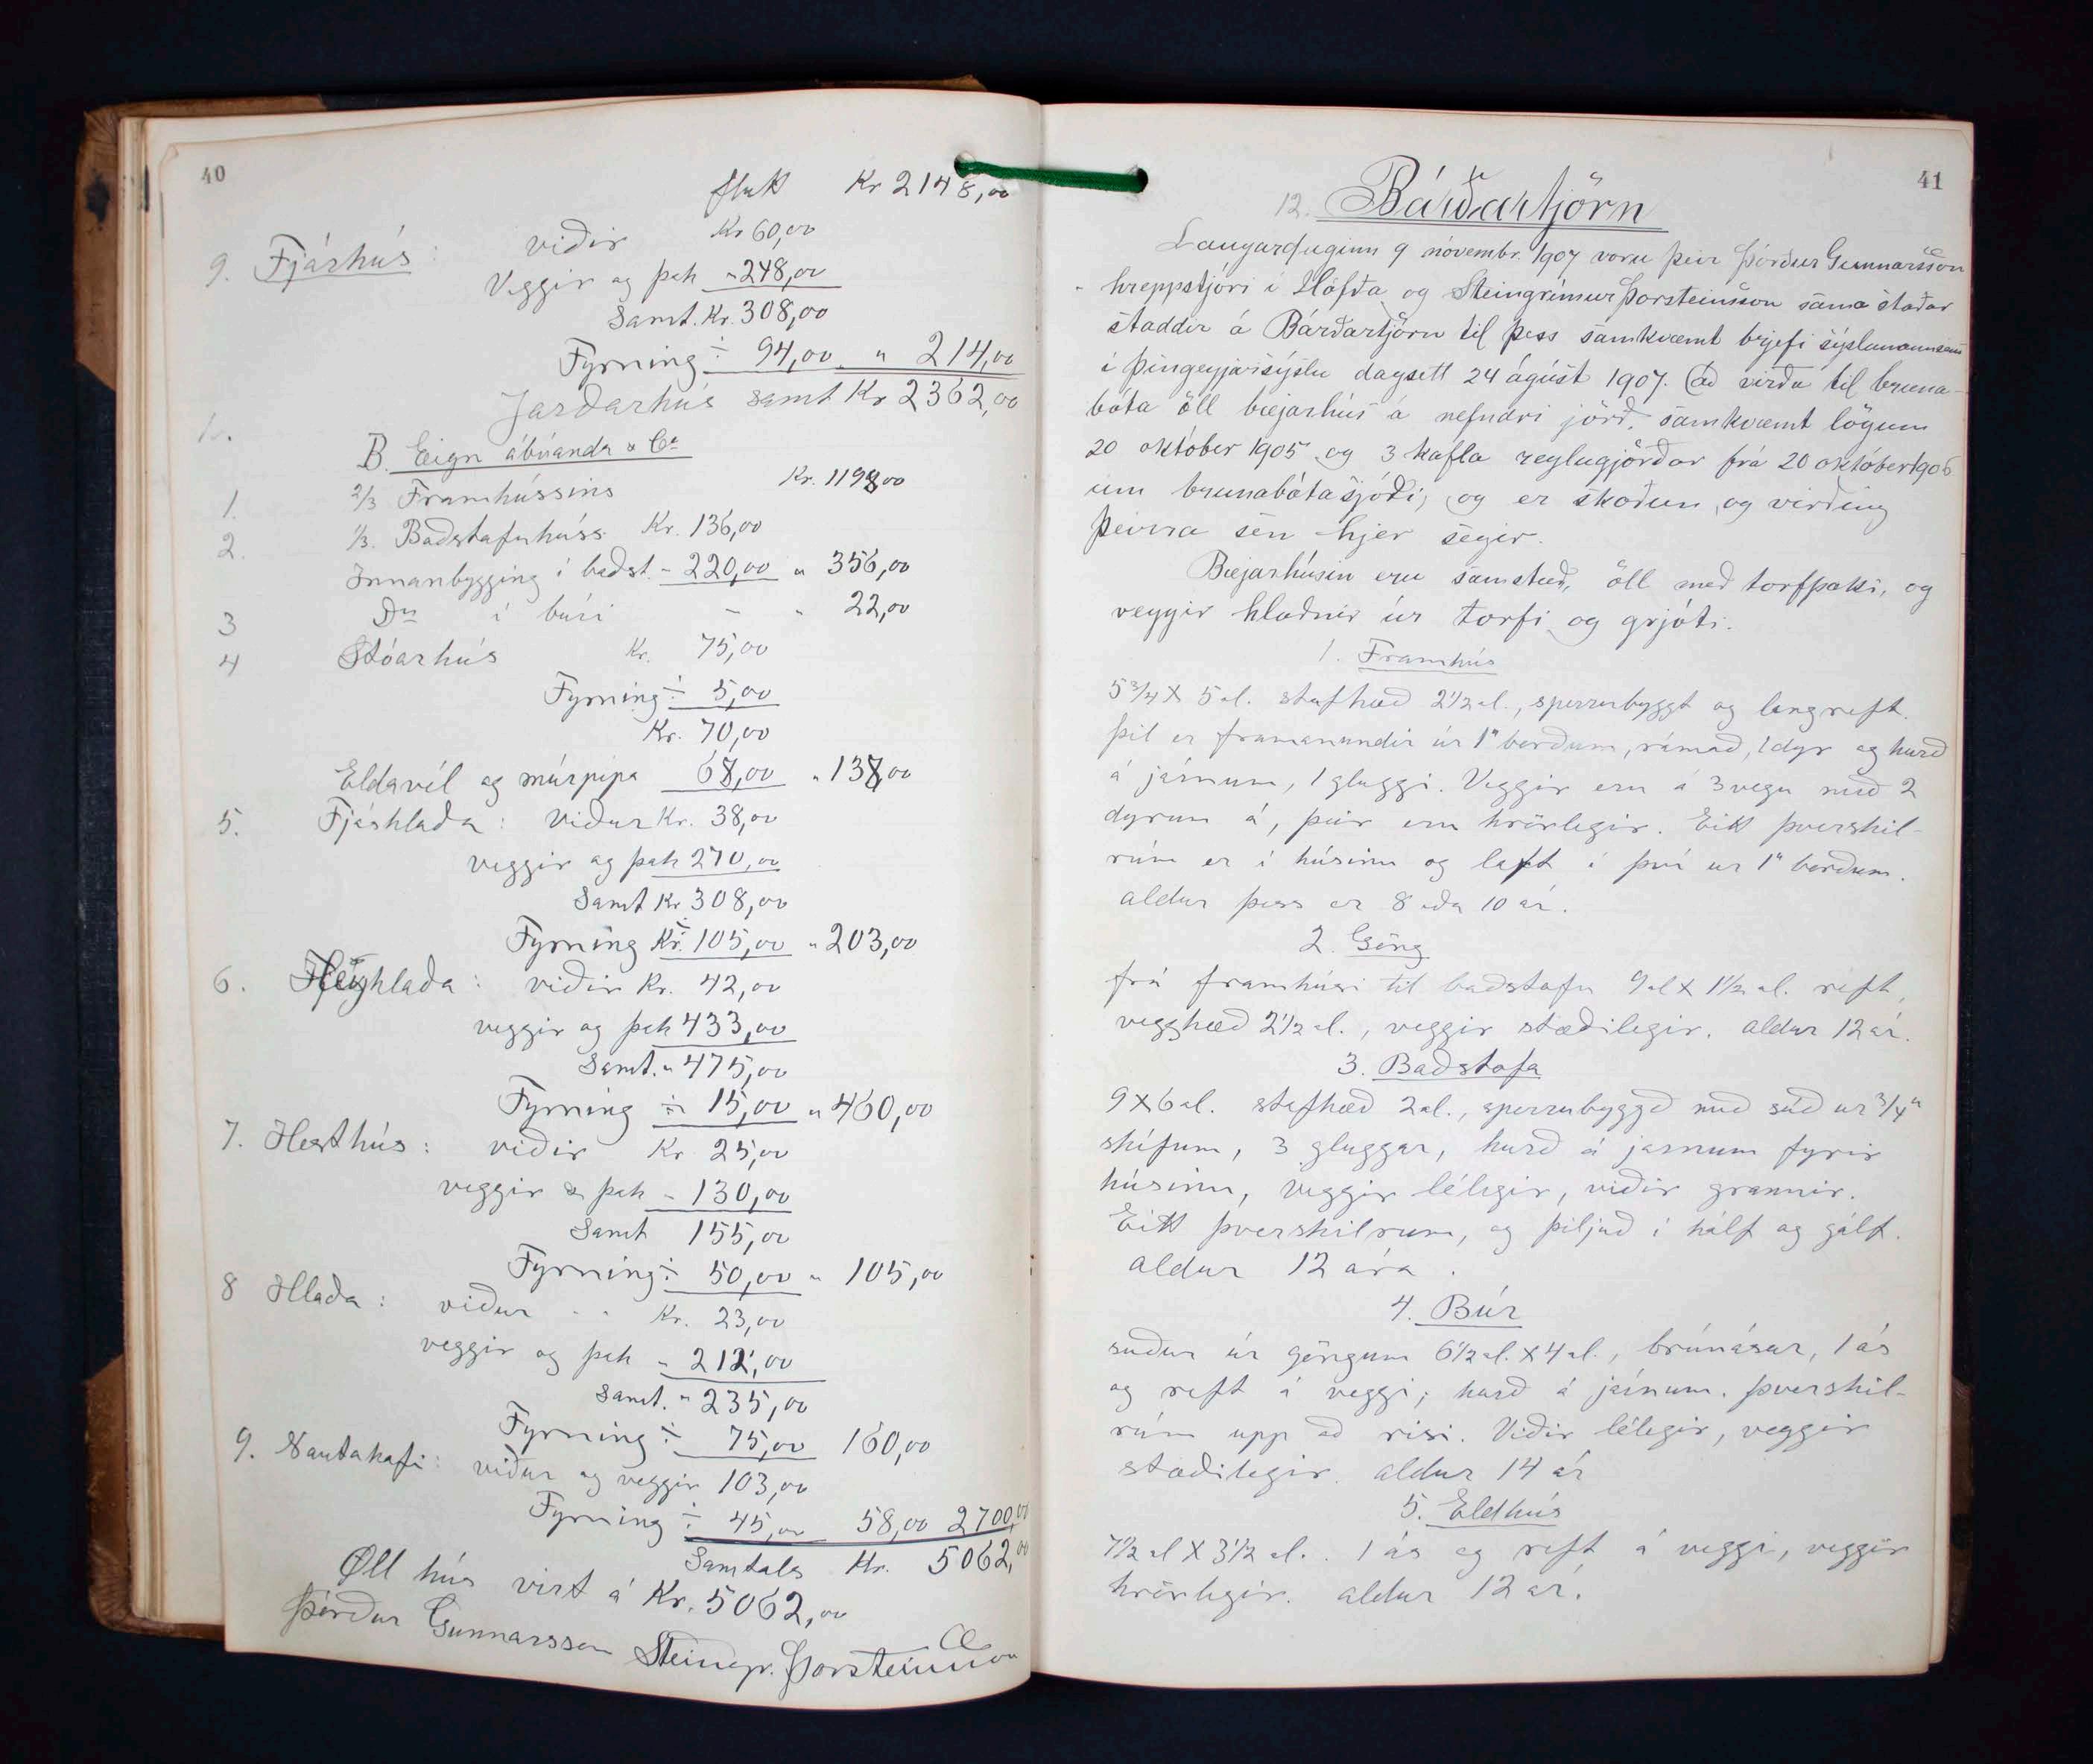 40
flutt Kr 2148,00
9. Fjárhús: viðir Kr 60,00
Veggir og þak " 248,00
Samt. Kr. 308,00
Fyrning ÷ 94,00 " 214,00
Jarðarhús samt Kr 2362,00
B. Eign ábúanda & Co
1. 2/3 Framhússins Kr. 1198,00
2. 1/3. Baðstofuhúss Kr. 136,00
Innanbygging í baðst. - 220,00 " 356,00
3 Do í búri - " 22,00
4 Stóarhús Kr. 75,00
Fyrning ÷ 5,00
Kr. 70,00
Eldavél og múrpípa 68,00 " 138,00
5. Fjáshlaða: viður Kr. 38,00
veggir og þak 270,00
Samt Kr 308,00
Fyrning Kr. ÷ 105,00 " 203,00
6. Heyhlaða: viðir Kr. 42,00
veggir og þak 433,00
Samt. " 475,00
Fyrning ÷ 15,00 " 460,00
7. Hesthús: viðir Kr 25,00
veggir & þak " 130,00
Samt 155,00
Fyrning ÷ 50,00 " 105,00
8 Hlaða: viður " " Kr. 23,00
veggir og þak " 212,00
Samt. " 235,00
Fyrning ÷ 75,00 160,00
9. Nautakofi: viður og veggir 103,00
Fyrning ÷ 45,00 58,00 2700,00
Samtals Kr. 5062,00
Öll hús virt á Kr. 5062,00
Þórður Gunnarsson Steingr. Þorsteinsson
41
12. Bárðartjörn
Laugardaginn 9 nóvembr. 1907 voru þeir Þórður Gunnarsson
hreppstjóri í Höfða og Steingrímur Þorsteinsson sama staðar
staddir á Bárðartjörn til þess samkvæmt brjefi sýslumannsins
í Þingeyjarsýslu dagsett 24 ágúst 1907. að virða til bruna-
bóta öll bæjarhús á nefndri jörð, samkvæmt lögum
20 október 1905 og 3 kafla reglugjörðar frá 20 október 1906
um brunabótasjóði, og er skoðun og virðing
þeirra sen hjer segir.
Bæjarhúsin eru samstæð, öll með torfþaki, og
veggir hlaðnir úr torfi og grjóti.
1. Framhús
5 3/4 X 5 al. stafhæð 2 1/2 al., sperrubyggt og langreft.
Þil er framanundir úr 1" borðum, rámað, 1 dyr og hurð
á járnum, 1 gluggi. Veggir eru á 3 vegu með 2
dyrum á, þeir eru hrörlegir. Eitt þverskil-
rúm er í húsinu og loft í því úr 1" borðum.
aldur þess er 8 eða 10 ár.
2. Göng
frá framhúsi til baðstofu 9 al X 1 1/2 al. reft,
vegghæð 2 1/2 al., veggir stæðilegir. aldur 12 ár.
3. Baðstofa
9 X 6 al. stafhæð 2 al., sperrubyggð með súð úr 3/4"
skífum, 3 gluggar, hurð á jarnum fyrir
húsinu, veggir lélegir, viðir grannir.
Eitt þverskilrum, og þiljað í hálf og gólf.
aldur 12 ára.
4. Búr
suður úr göngum 6 1/2 al. X 4 al., brúnásar, 1 ás
og reft á veggi, hurð á járnum. þverskil-
rúm upp að risi. Viðir lélegir, veggir
stæðilegir. aldur 14 ár
5. Eldhús
7 1/2 al X 3 1/2 al. 1 ás og reft á veggi, veggir
hrörlegir. aldur 12 ár.